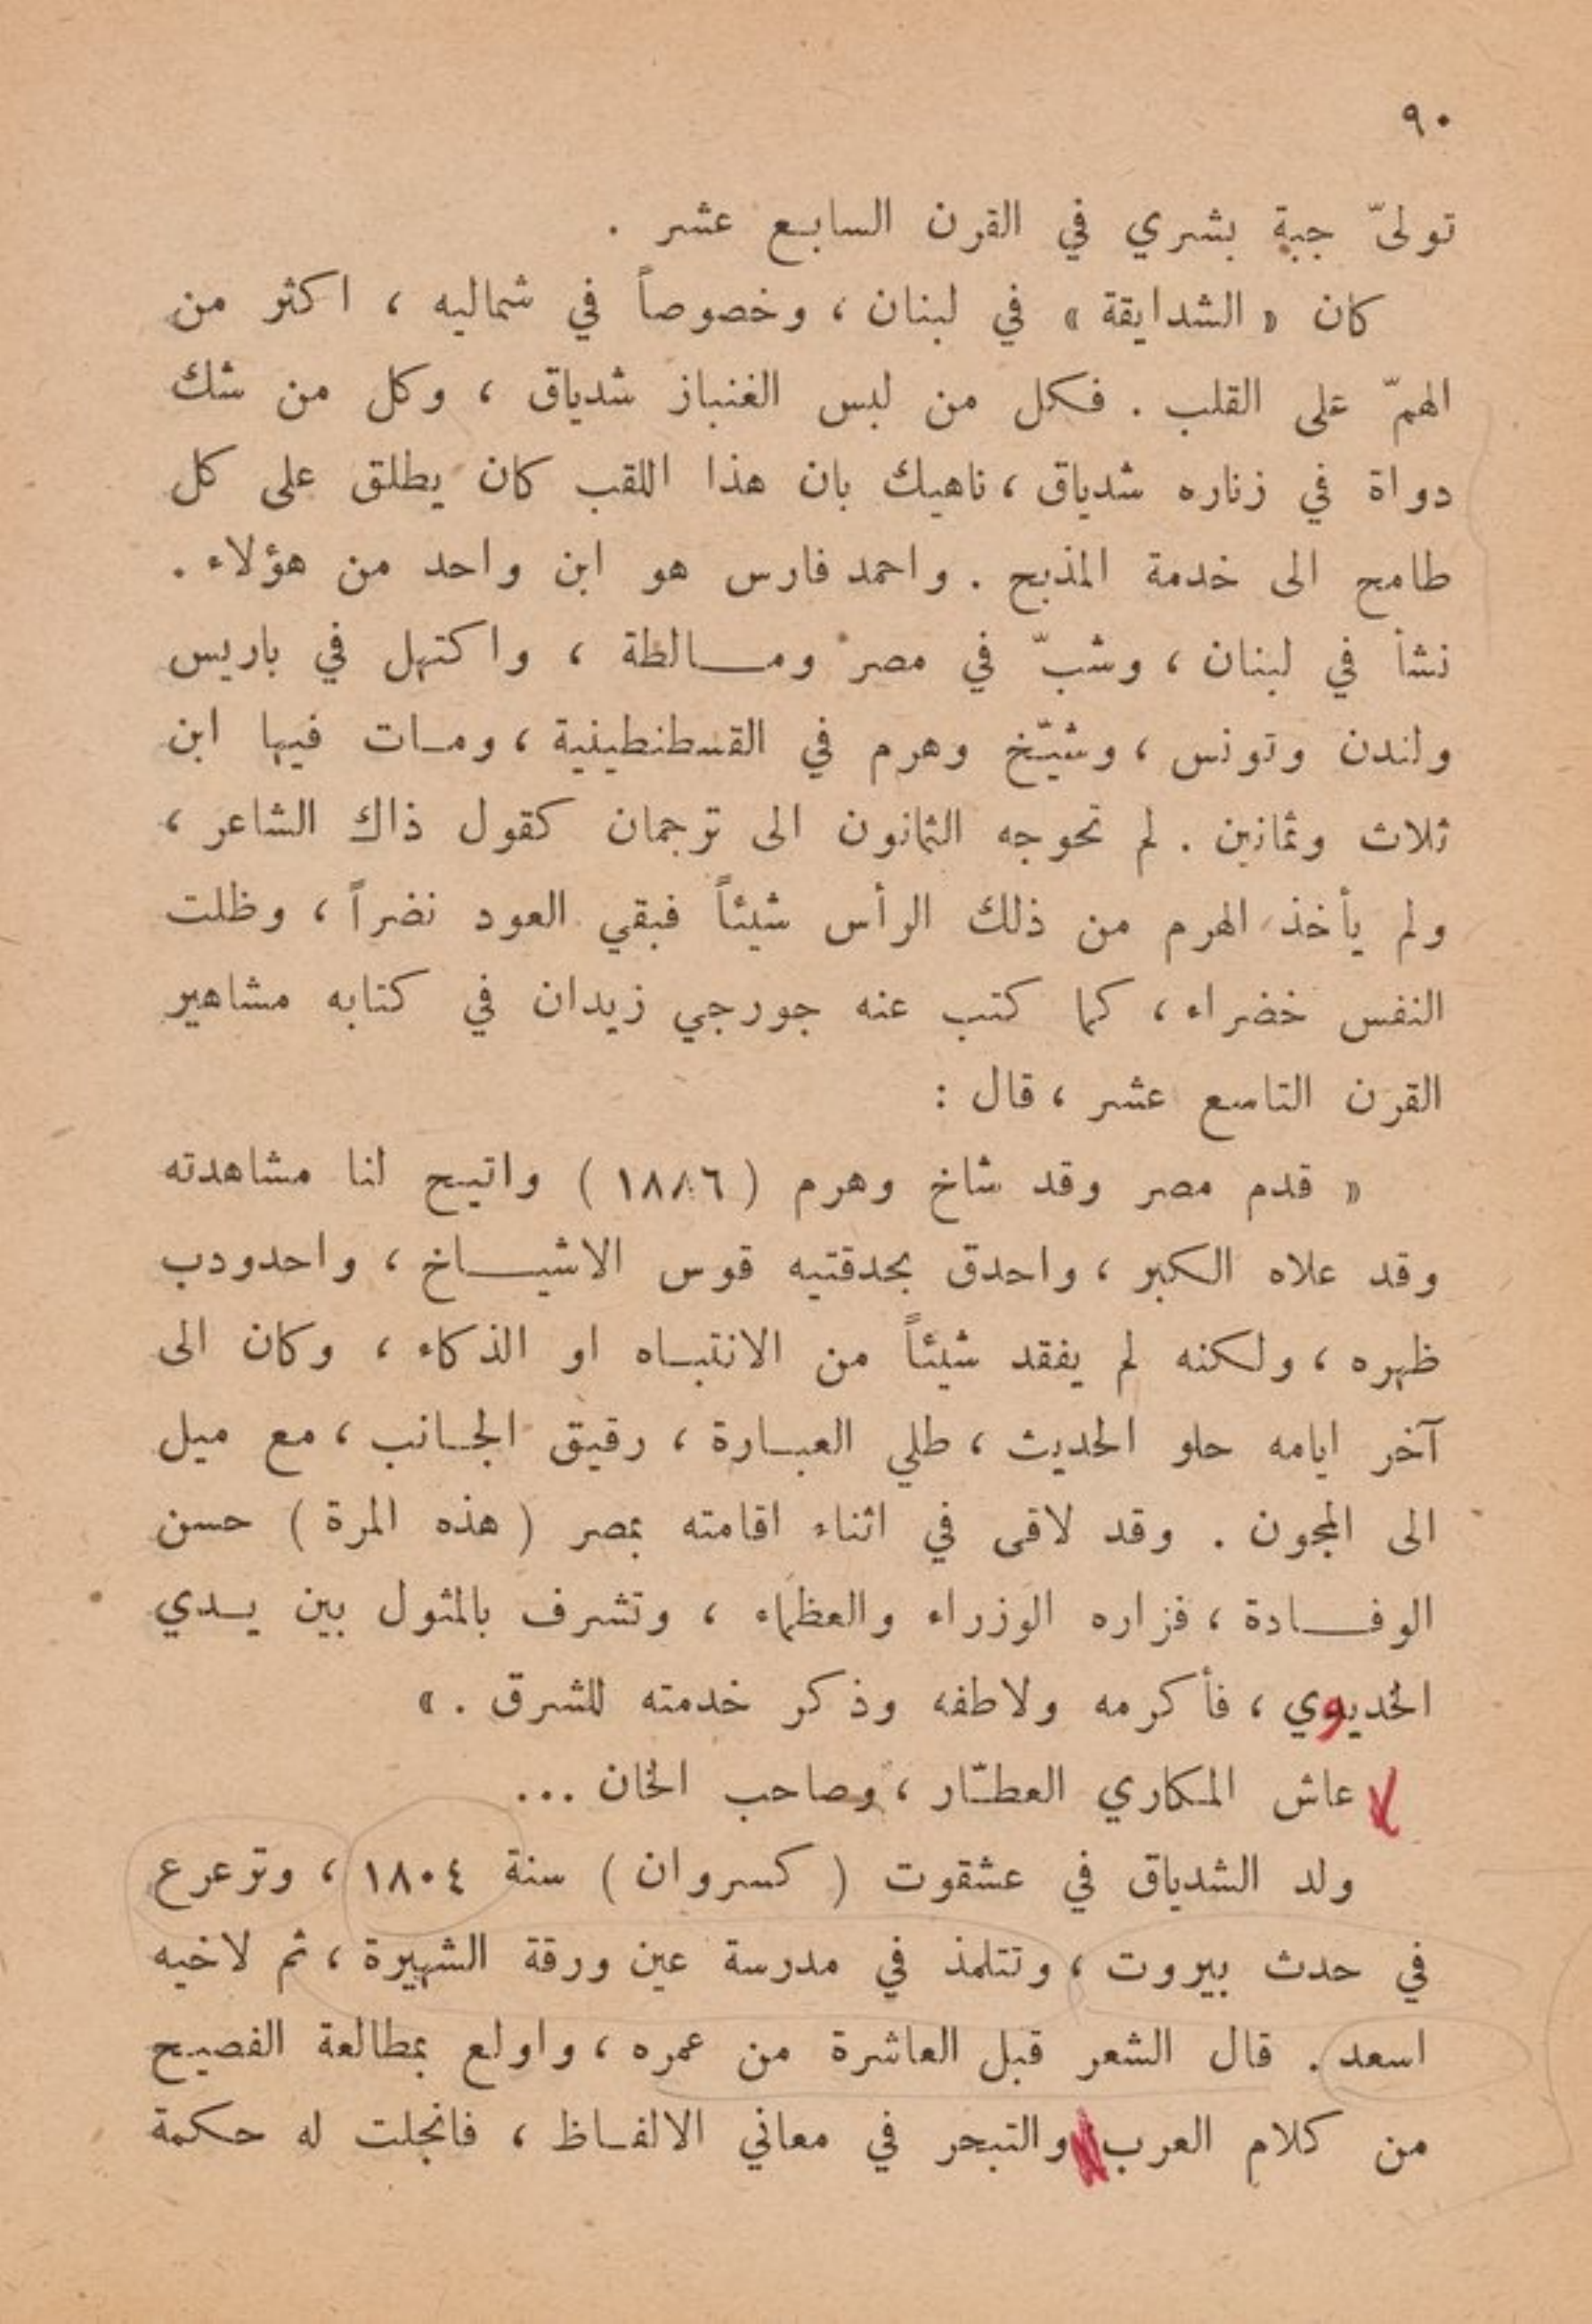 ٩٠
تولىّ جبة بشري في القرن السابع عشر .
كان « الشدايقة » في لبنان ، وخصوصاً في شماليه ، اكثر من
الهمّ على القلب . فكل من لبس الغنباز شدياق ، وكل من شك
دواة في زناره شدياق ، ناهيك بان هذا اللقب كان يطلق على كل
طامح الى خدمة المذبح . واحمد فارس هو ابن واحد من هؤلاء .
نشأ في لبنان ، وشبّ في مصر ومالطة ، واكتهل في باريس
ولندن وتونس ، وشيّخ وهرم في القسطنطينية ، ومات فيها ابن
ثلاث وثمانين . لم تحوجه الثمانون الى ترجمان كقول ذاك الشاعر ،
ولم يأخذ الهرم من ذلك الرأس شيئاً فبقي العود نضراً ، وظلت
النفس خضراء ، كما كتب عنه جورجي زيدان في كتابه مشاهير
القرن التاسع عشر ، قال :
« قدم مصر وقد شاخ وهرم ( ١٨٨٦ ) واتيح لنا مشاهدته
وقد علاه الكبر ، واحدق بحدقتيه قوس الاشياخ ، واحدودب
ظهره ، ولكنه لم يفقد شيئاً من الانتباه او الذكاء ، وكان الى
آخر ايامه حلو الحديث ، طلي العبارة ، رقيق الجانب ، مع ميل
الى المجون . وقد لاقى في اثناء اقامته بمصر ( هذه المرة ) حسن
الوفادة ، فزاره الوزراء والعظماء ، وتشرف بالمثول بين يدي
الخديوي ، فأكرمه ولاطفه وذكر خدمته للشرق . »
عاش المكاري العطّار ، وصاحب الخان ...
ولد الشدياق في عشقوت ( كسروان ) سنة ١٨٠٤ ، وترعرع
في حدث بيروت ، وتتلمذ في مدرسة عين ورقة الشهيرة ، ثم لاخيه
اسعد . قال الشعر قبل العاشرة من عمره ، واولع بمطالعة الفصيح
من كلام العرب والتبحر في معاني الالفاظ ، فانجلت له حكمة